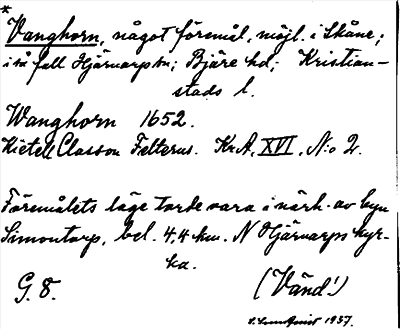 *
Vanghorn, något föremål, möjl. i Skåne;
i så fall Hjärnarps sn; Bjäre hd; Kristian-
stads l.
Wanghorn 1652.
Kietell Classon Felterus. KrA, XVI, N:o 2.
Föremålets läge torde vara i närh. av byn
Simontorp, bel. 4,4 km. N Hjärnarps kyr-
ka.
G. 8. (Vänd!)
1937.